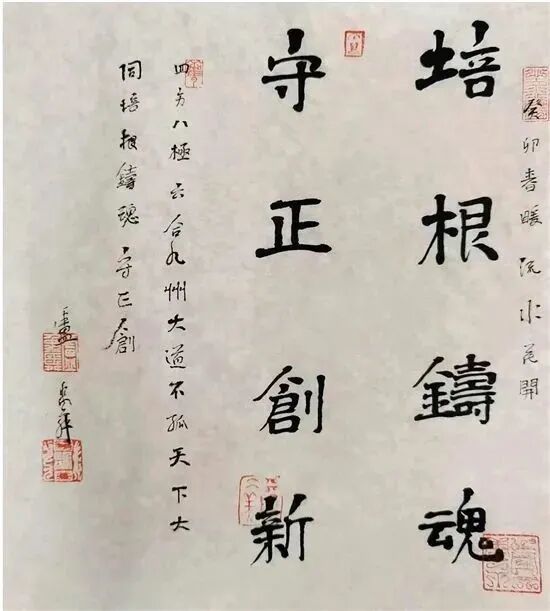 癸卯春暖流水花開
培根鑄魂
守正創新
四方八極六合九州大道不孤天下大
同培根鑄魂守正創